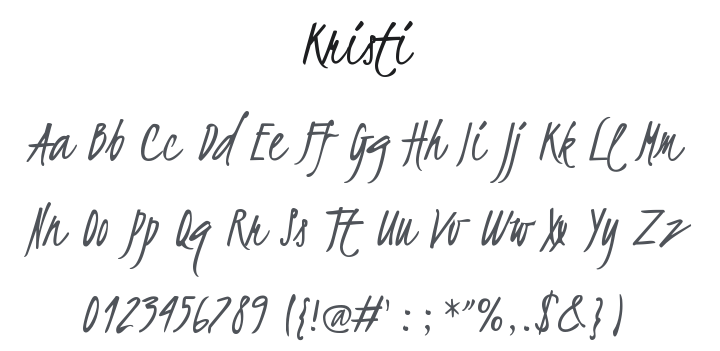 Kristi
Aa Bb Cc Dd Ee Ff Gg Hh Ii Jj Kk Ll Mm
Nn Oo Pp Qq Rr Ss Tt Uu Vv Ww Xx Yy Zz
0123456789 ({!@#' : ; *"%,.$&})